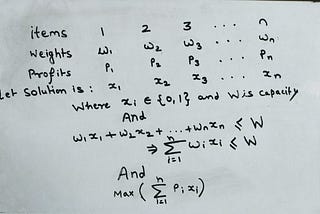 items 1 2 3 ... n
Weights w₁ w₂ w₃ ... wₙ
Profits P₁ P₂ P₃ ... Pₙ
Let Solution is : x₁ x₂ x₃ ... xₙ
Where xᵢ ∈ {0,1} and W is capacity
And
w₁x₁ + w₂x₂ + ... + wₙxₙ ≤ W
⇒ ∑ᵢ₌₁ⁿ wᵢxᵢ ≤ W
And
Max ( ∑ᵢ₌₁ⁿ Pᵢxᵢ )